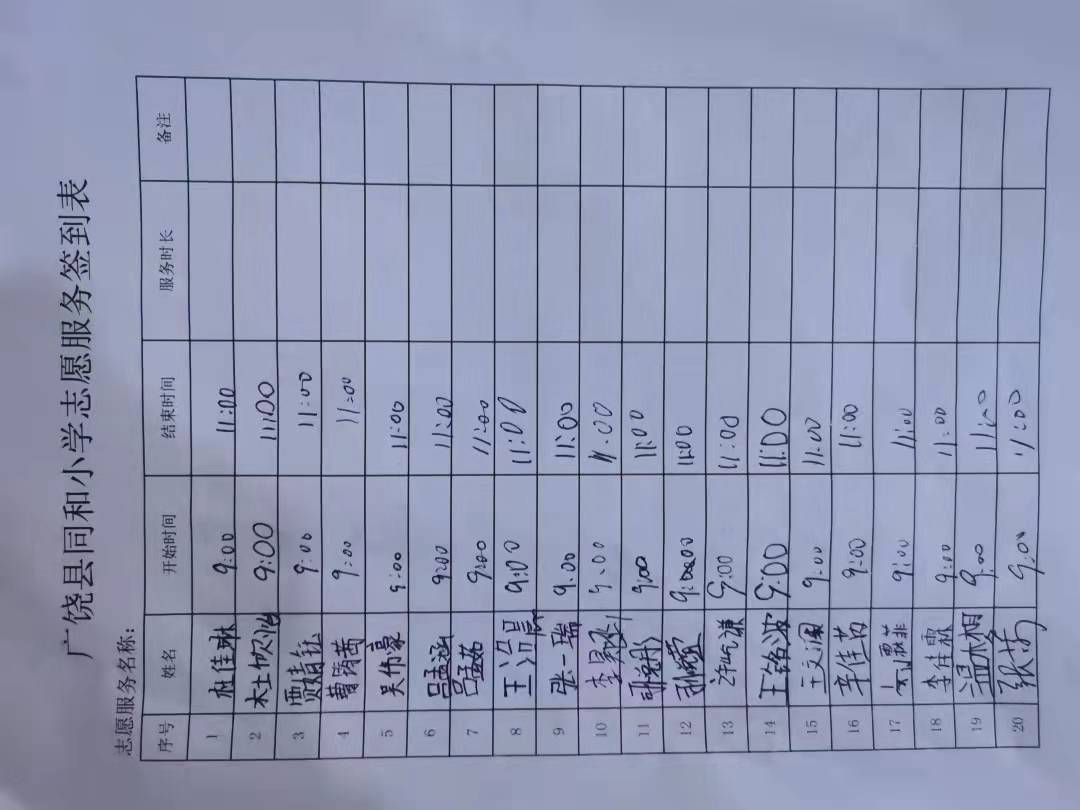 广饶县同和小学志愿服务签到表
志愿服务名称：
序号 姓名 开始时间 结束时间 服务时长 备注
1 杜佳琳 9:00 11:00
2 9:00 11:00
3 贾婧钰 9:00 11:00
4 曹筠茜 9:00 11:00
5 吴伟豪 9:00 11:00
6 吕孟涵 9:00 11:00
7 吕孟茹 9:00 11:00
8 王浩晨 9:00 11:00
9 张一瑞 9:00 11:00
10 9:00 11:00
11 9:00 11:00
12 11:00
13 9:00 11:00
14 王铭波 9:00 11:00
15 9:00 11:00
16 辛佳苗 9:00 11:00
17 9:00 11:00
18 李佳霖 9:00 11:00
19 9:00 11:00
20 9:00 11:00